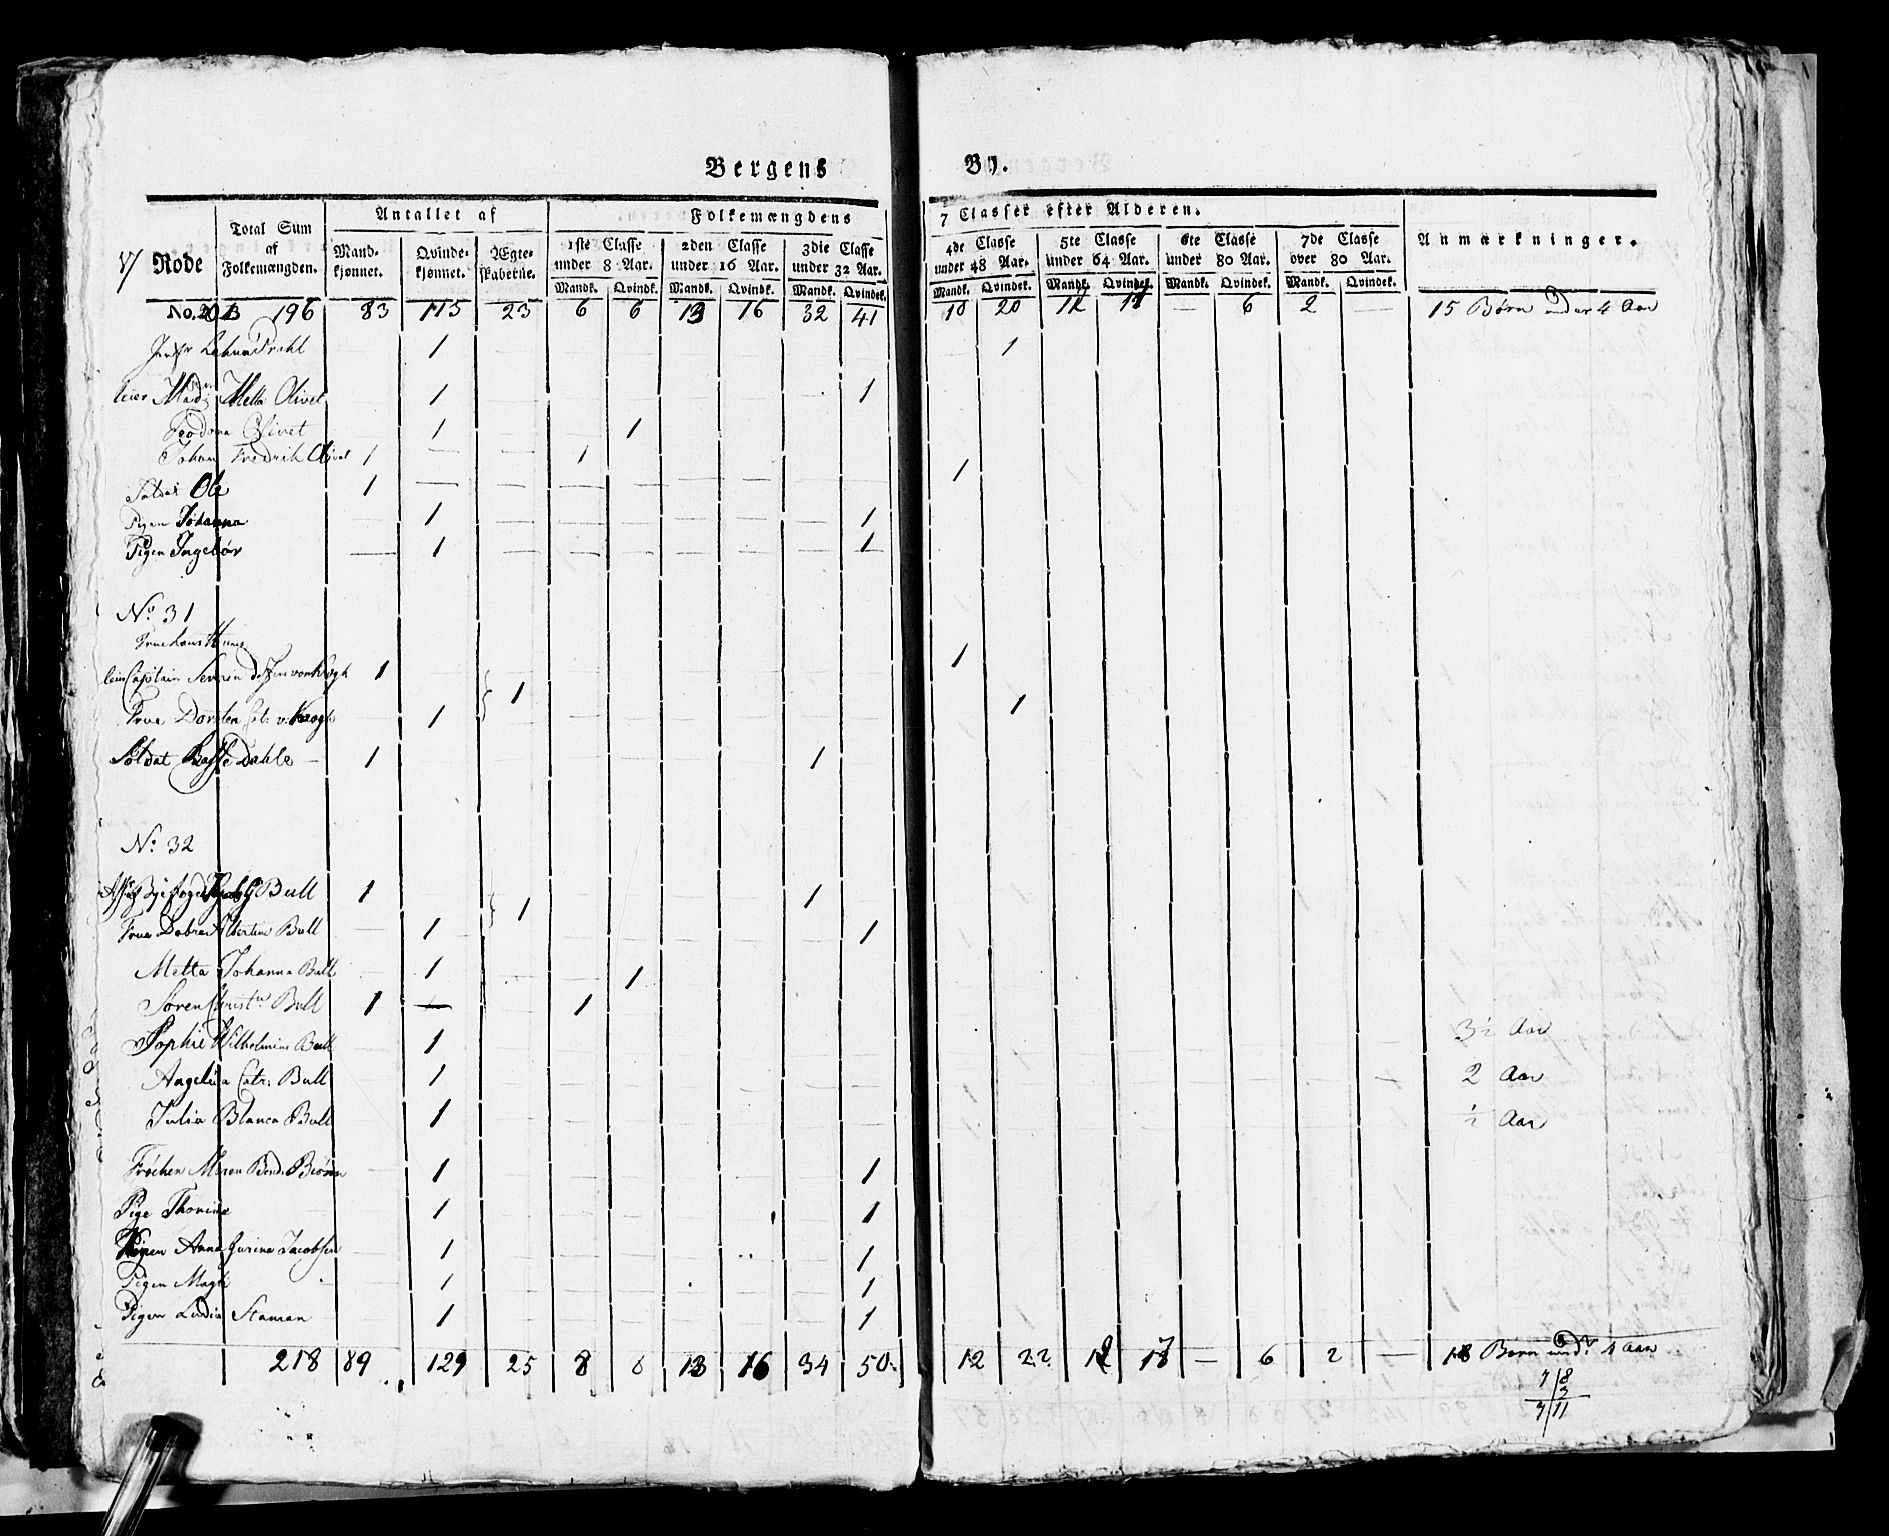 Bergens By.
Rode
Total Sum af Folkemængden.
Antallet af
Mandkjønnet. Qvindekjønnet. Ægteskaberne.
Folkemængdens 7 Classer efter Alderen.
1ste Classe under 8 Aar. 2den Classe under 16 Aar. 3die Classe under 32 Aar. 4de Classe under 48 Aar. 5te Classe under 64 Aar. 6te Classe under 80 Aar. 7de Classe over 80 Aar.
Anmærkninger.
Mandk. Qvindk. Mandk. Qvindk. Mandk. Qvindek. Mandk. Qvindek. Mandk. Qvindek. Mandk. Qvindk. Mandk. Qvindk.
No. 196 83 115 23 6 6 13 16 32 41 10 20 — 6 2 — 15 Børn under 4 Aar
1 1
Mad Metta Olivet 1 1
Feodora Olivet 1 — — 1
Johan Fredrik Olivet 1 — — 1
Ole 1 — — 1
Pigen Johanna 1 1
Pigen Ingebor — 1 1
No. 31
Captain Severin von Krogh 1 1
1
Frue Dorthea v. Krogh 1 1
Soldat Dahle 1 1
No. 32
Bull 1 1
1
Frue Albertine Bull 1 1
Metta Johanna Bull 1 1
Søren Bull 1 — 1
Sophie Wilhelmine Bull 1 3½ Aar
Angelica Catr: Bull 1 2 Aar
Julia Blanca Bull 1 ½ Aar
Frøken Maren 1 1
Pige Thorine 1 1
Pigen Anna Jacobsen 1 1
Pigen 1 1
Pigen 1 1
218 89 129 25 8 8 13 16 34 50 12 22 — 6 2 — 18 Børn under 4 Aar
7 8
3
7 11